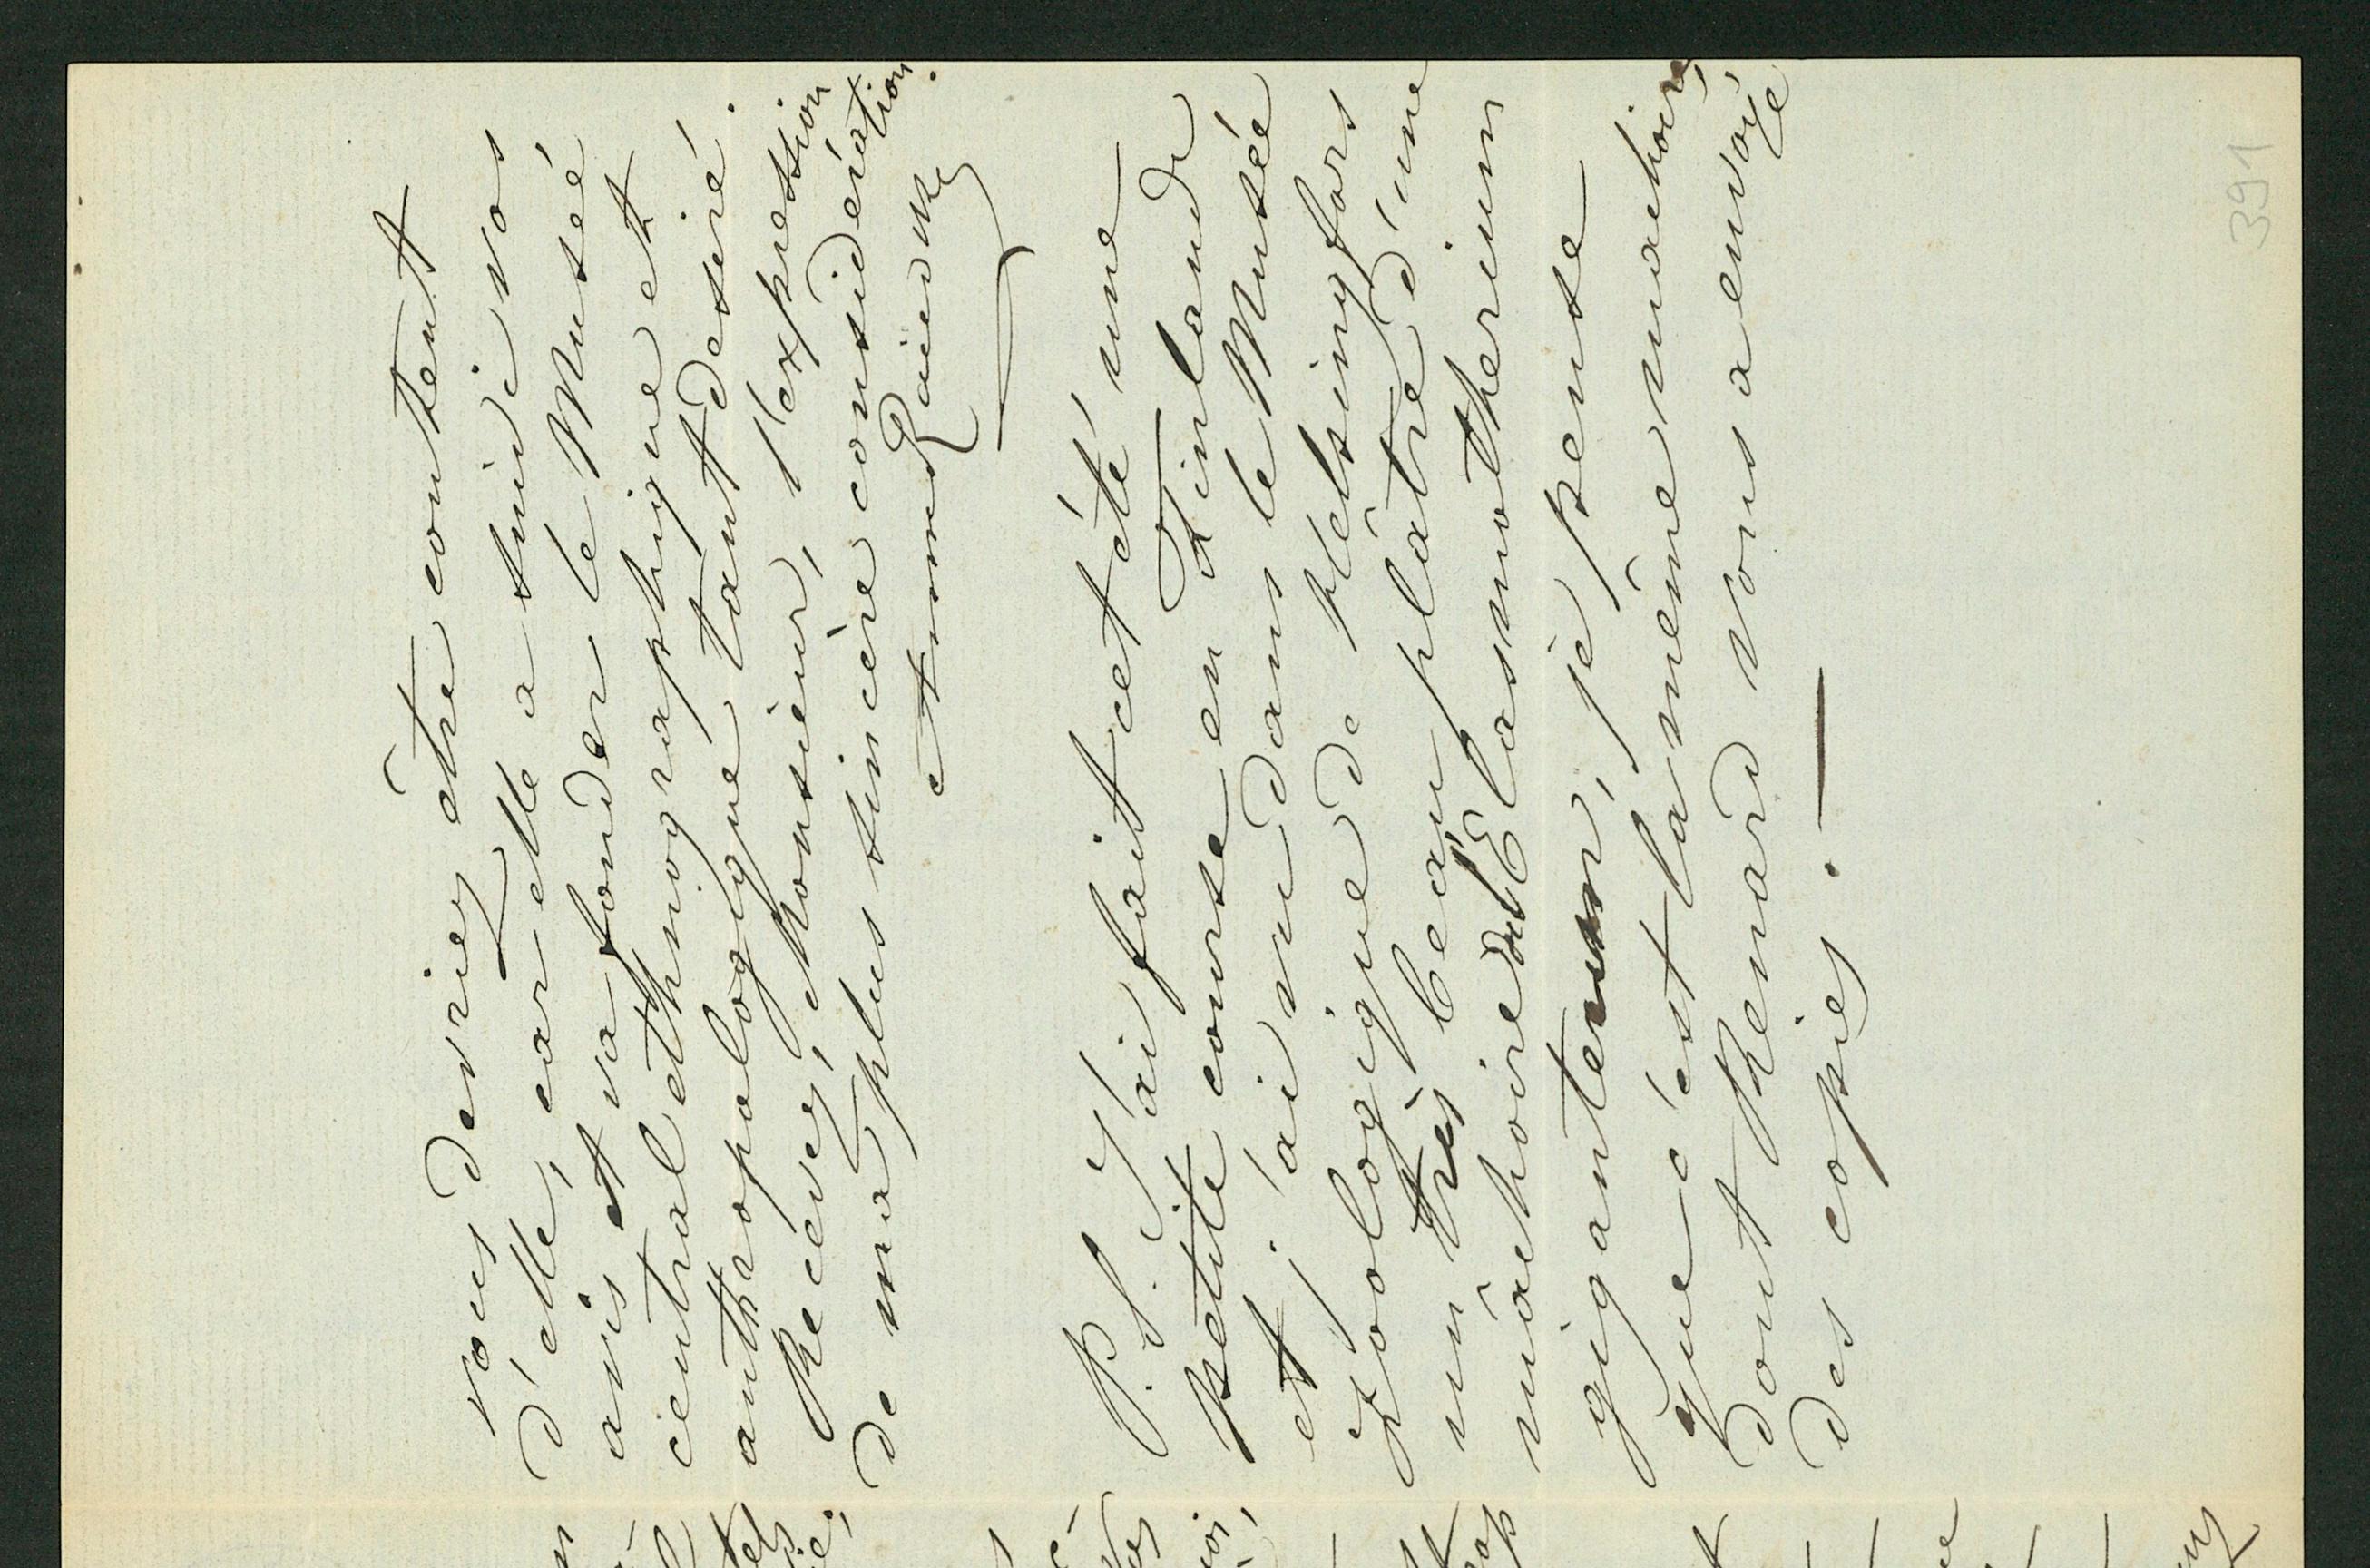 vous devriez être content
d'elle, car elle a suivi vos
avis et va fonder le Musée
central ethnographique et
anthropologique tant desiré.
Recevez, Monsieur, l'expression
de ma plus sincère considération.
P.S. J'ai fait cet été une
petite course en Finlande
et j'ai vu dans le Musée
zoologique de Helsingfors
un très beau plâtre d'une
mâchoire d'Elasmotherium
giganteum, je pense
que c'est la même mâchoire,
dont Renard vous a envoyé
des copies. —
391